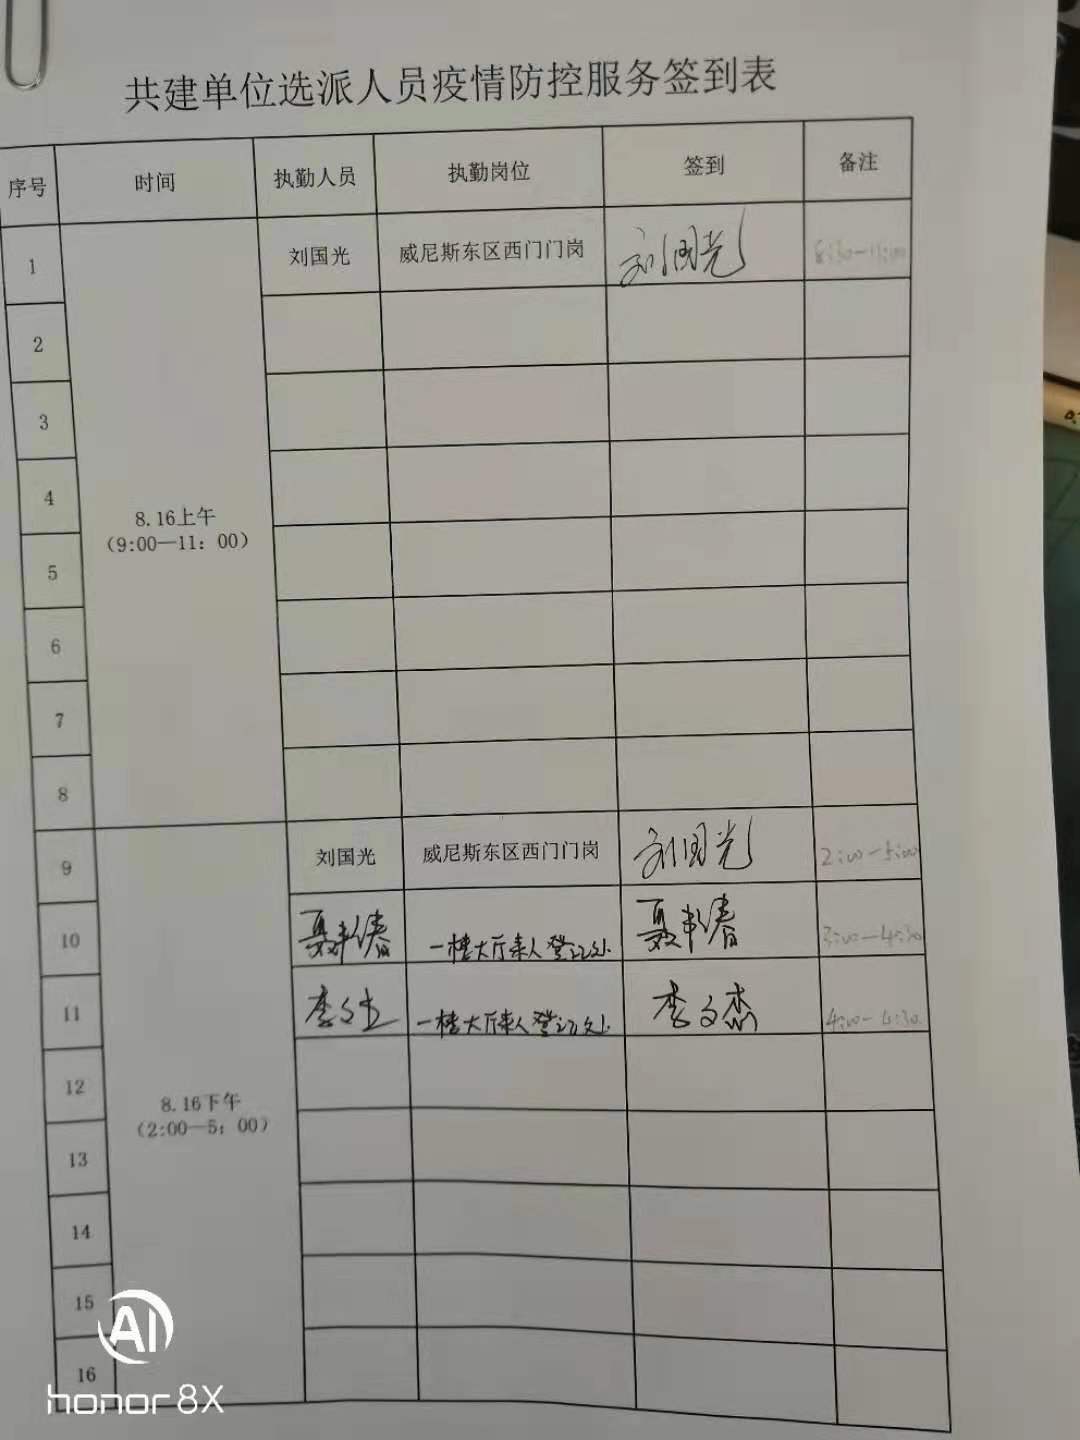 共建单位选派人员疫情防控服务签到表
序号 时间 执勤人员 执勤岗位 签到 备注
1 刘国光 威尼斯东区西门门岗 刘国光 8:30-11:00
2
3
4
8.16上午
(9:00—11：00)
5
6
7
8
9 刘国光 威尼斯东区西门门岗 刘国光 2:00-5:00
10 一楼大厅来人登记处 3:00-4:30
11 李文杰 一楼大厅来人登记处 李文杰
12
8.16下午
(2:00—5：00)
13
14
15
16
AI
honor 8X